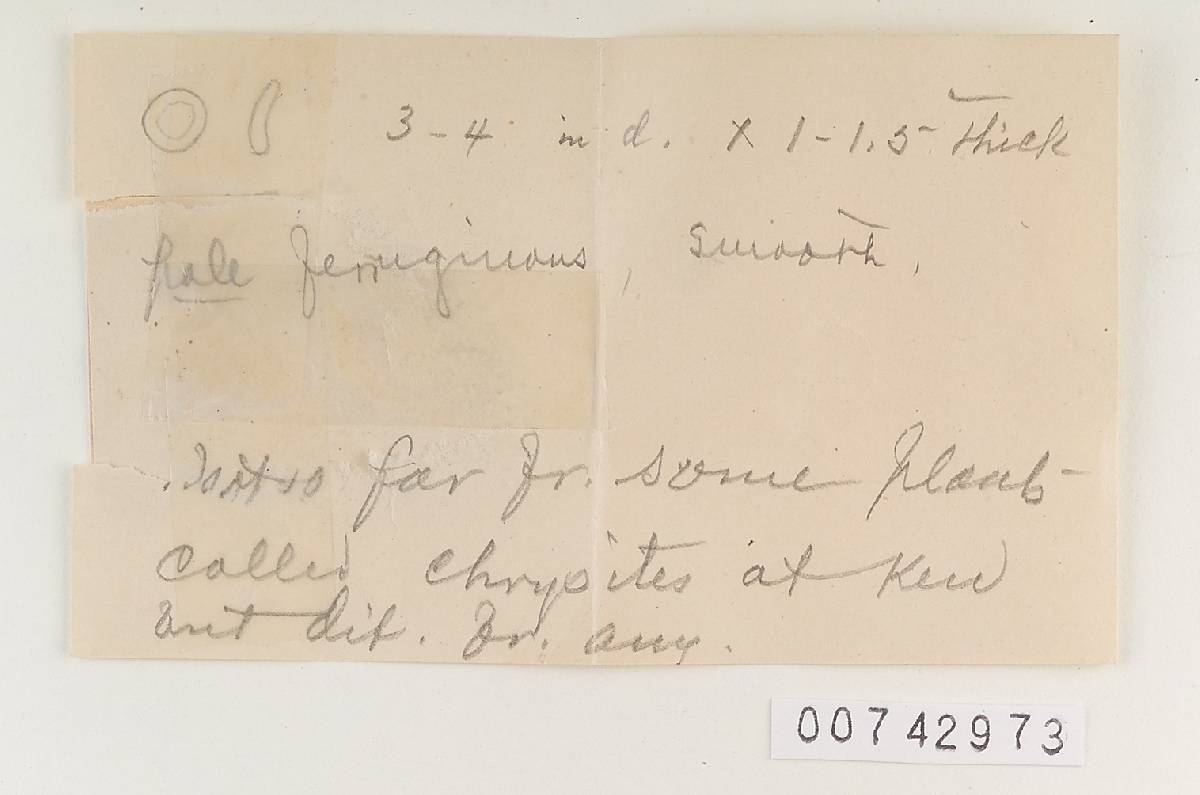 3-4 in d. x 1-1.5 Thick
pale ferruginous, smooth,
Not so far fr. some plants
called chrysites at Kew
but dif. fr. any.
00742973